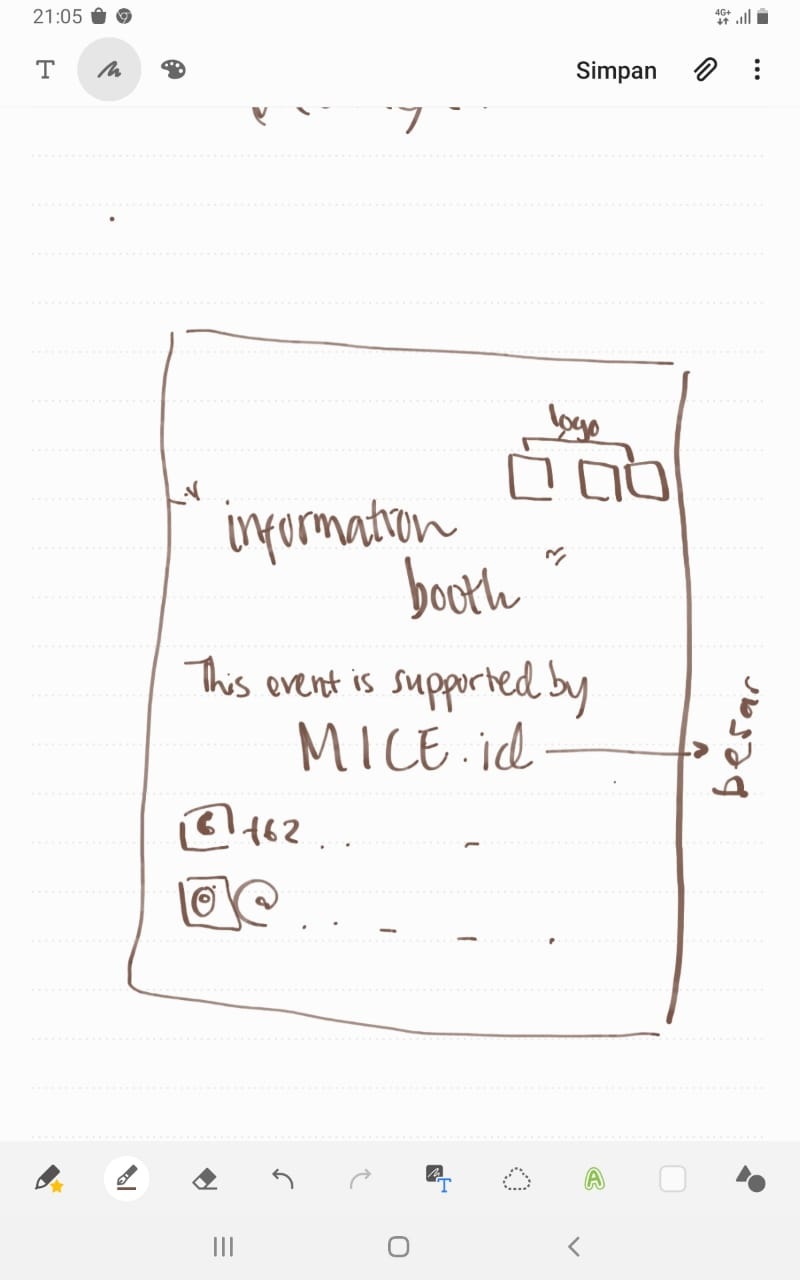 21:05
4G+
T
Simpan
logo
"information
booth"
This event is supported by
MICE.id
besar
+62 . . -
@ . . - - .
T
A